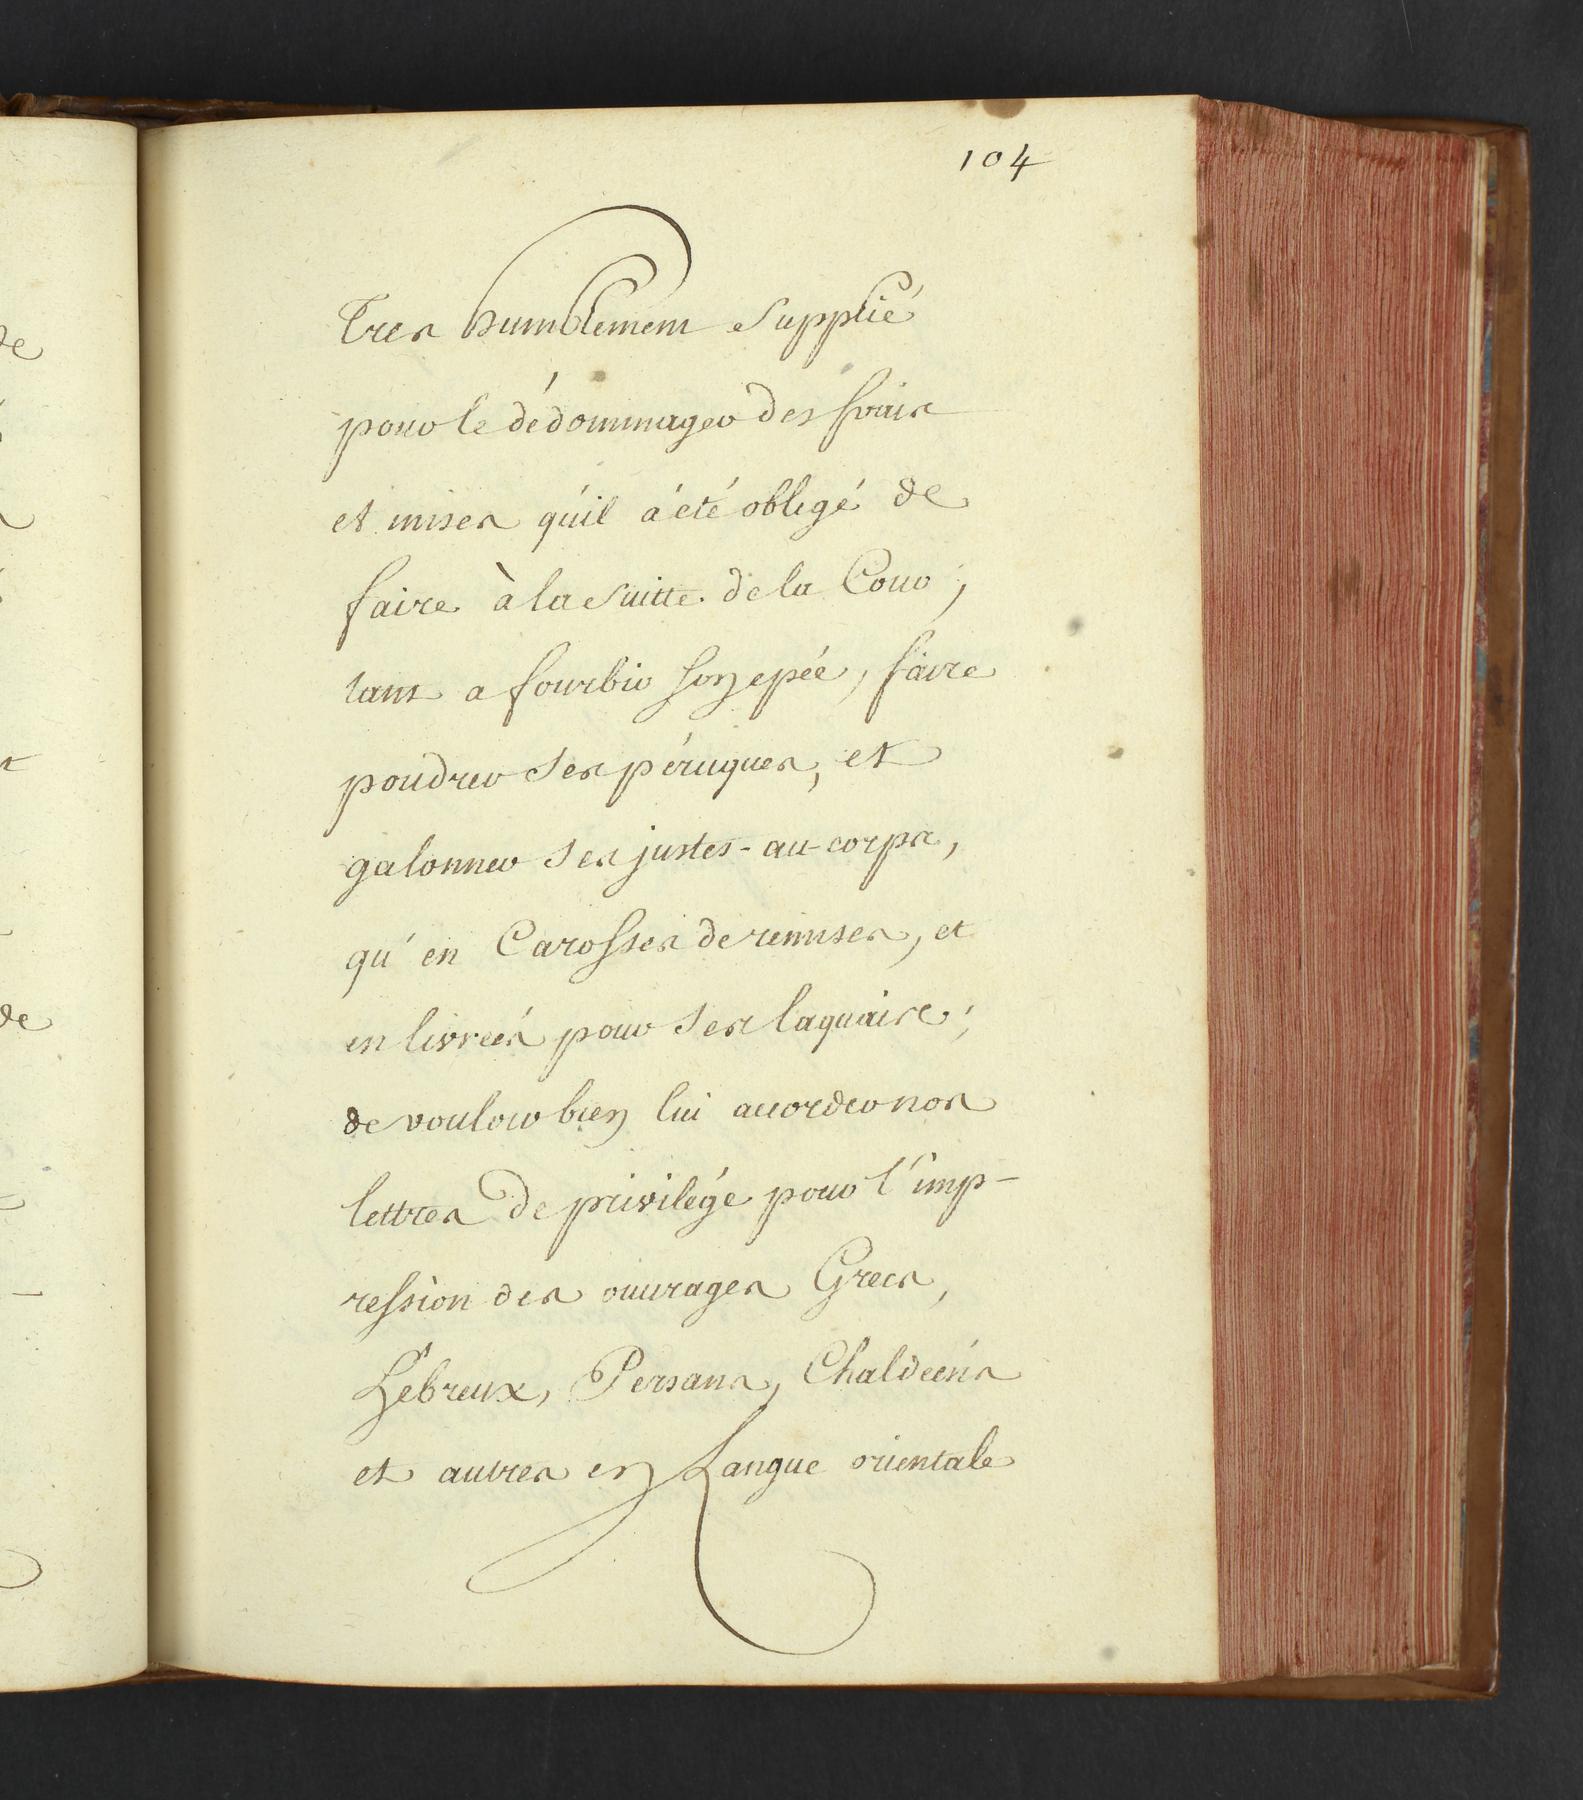 104
Tres humblement Supplié
pour le dédommager des frais
et mises qu'il á été obligé de
faire à la Suitte de la Cour;
tant a fourbir son epée, faire
poudrer Ses péruques, et
galonner Ses justes-au-corps,
qu'en Carosses de remises, et
en livreés pour Ses laquais;
de vouloir bien lui acorder nos
lettres de privilége pour l'imp-
ression des ouvrages Grecs,
Hébreux, Persans, Chaldeéns
et autres en Langue orientale
de
de